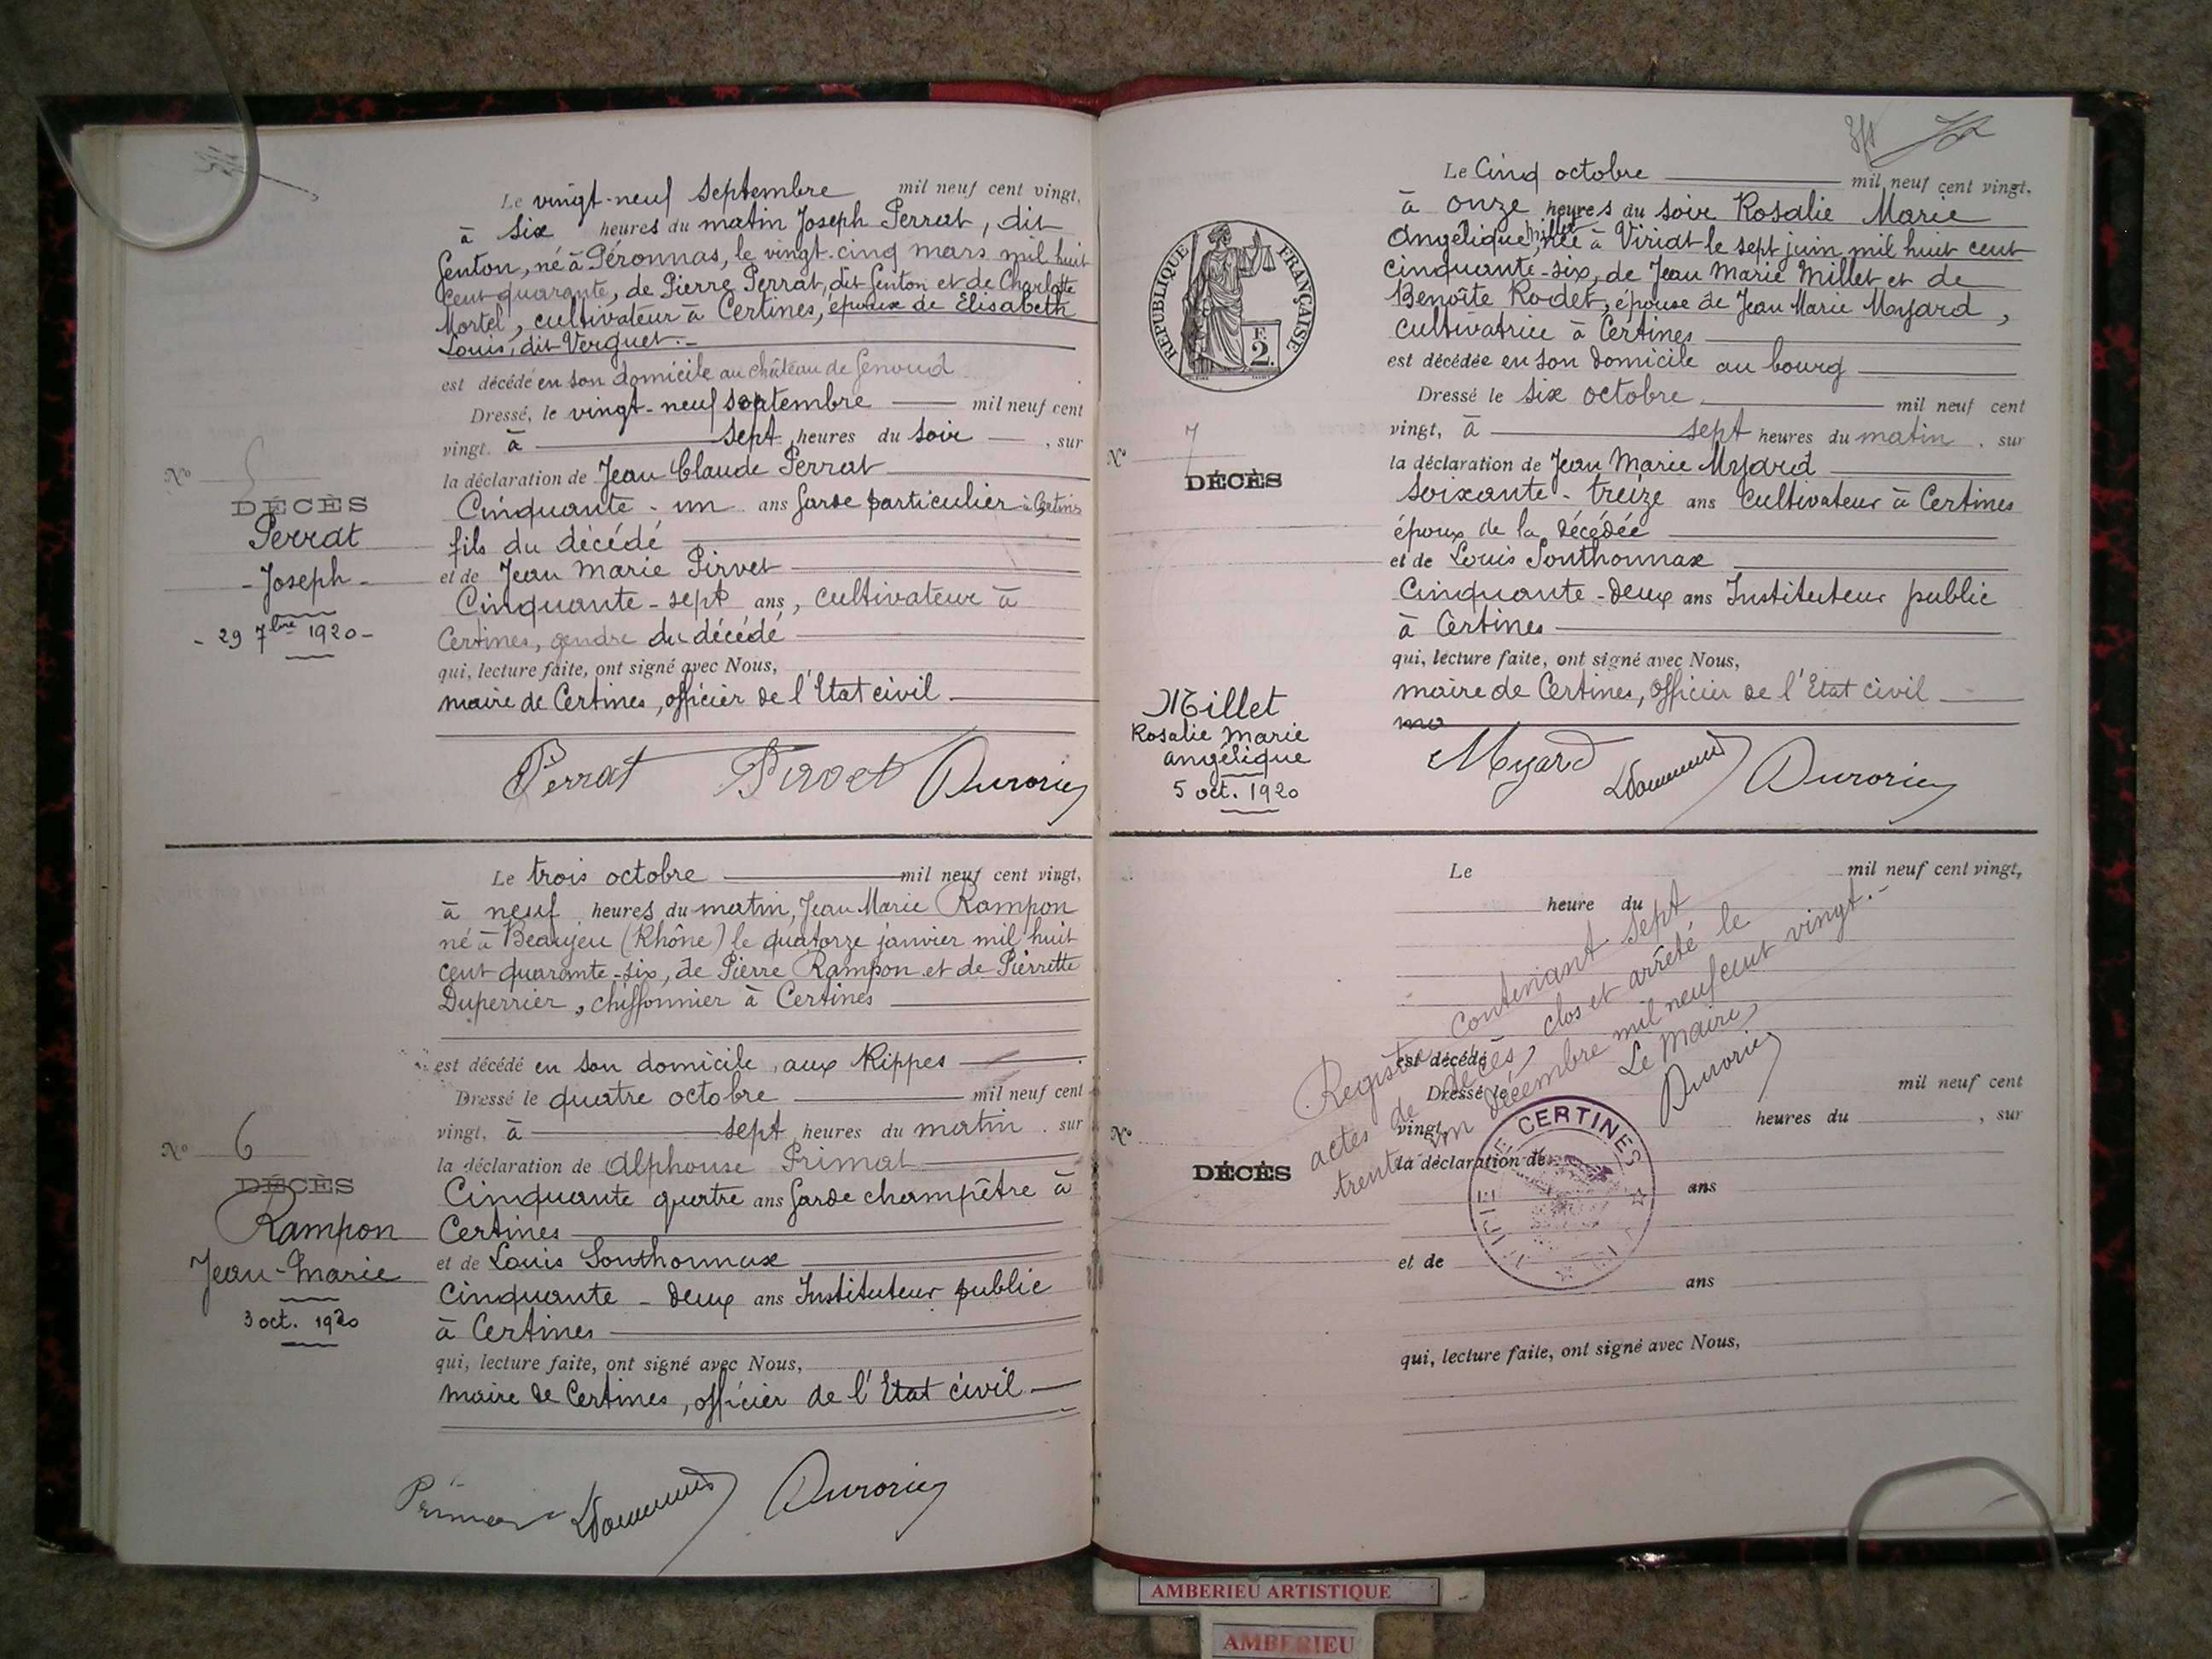 Le vingt-neuf Septembre mil neuf cent vingt,
à six heures du matin Joseph Perrat, dit
Genton, né à Péronnas, le vingt-cinq mars mil huit
cent quarante, de Pierre Perrat, dit Genton et de Charlotte
Mortel, cultivateur à Certines, époux de Elisabeth
Louis, dit Verguet.-
est décédé en son domicile au château de Genoud
Dressé, le vingt-neuf septembre mil neuf cent
vingt. à sept heures du soir, sur
la déclaration de Jean Claude Perrat
Cinquante-un ans Garde particulier à Certines
fils du décédé
et de Jean Marie Pirvet
Cinquante-sept ans, cultivateur à
Certines, gendre du décédé
qui, lecture faite, ont signé avec Nous,
maire de Certines, officier de l'Etat civil
Perrat Pirvet
N° 5
DÉCÈS
Perrat
-Joseph-
- 29 7bre 1920 -
Le trois octobre mil neuf cent vingt,
à neuf heures du matin, Jean Marie Rampon
né à Beaujeu (Rhône) le quatorze janvier mil huit
cent quarante-six, de Pierre Rampon et de Pierrette
Duperrier, chiffonnier à Certines
est décédé en son domicile, aux Rippes
Dressé le quatre octobre mil neuf cent
vingt, à sept heures du matin. sur
la déclaration de Alphonse Primat
Cinquante quatre ans Garde champêtre à
Certines
et de Louis Southonnax
Cinquante-deux ans Instituteur public
à Certines
qui, lecture faite, ont signé avec Nous,
maire de Certines, officier de l'Etat civil
Primat
N° 6
DÉCÈS
Rampon
Jean-Marie
3 oct. 1920
Le Cinq octobre mil neuf cent vingt.
à onze heures du soir Rosalie Marie
Angélique Millet, née à Viriat le sept juin mil huit cent
cinquante-six, de Jean Marie Millet et de
Benoîte Rodet, épouse de Jean Marie Myard,
cultivatrice à Certines
est décédée en son domicile au bourg
Dressé le six octobre mil neuf cent
vingt, à sept heures du matin, sur
la déclaration de Jean Marie Myard
Soixante-treize ans cultivateur à Certines
époux de la décédée
et de Louis Southonnax
Cinquante-deux ans Instituteur public
à Certines
qui, lecture faite, ont signé avec Nous,
maire de Certines, officier de l'Etat civil
Myard
RÉPUBLIQUE FRANÇAISE
F.
2.
N° 7
DÉCÈS
Millet
Rosalie Marie
Angélique
5 oct. 1920
Le mil neuf cent vingt,
heure du
est décédé
Dressé le mil neuf cent
vingt, heures du , sur
la déclaration de
ans
et de
ans
qui, lecture faite, ont signé avec Nous,
N°
DÉCÈS
Registre contenant sept
actes de décès, clos et arrêté le
trente un décembre mil neuf cent vingt.-
Le Maire,
CERTINES
AMBERIEU ARTISTIQUE
AMBERIEU